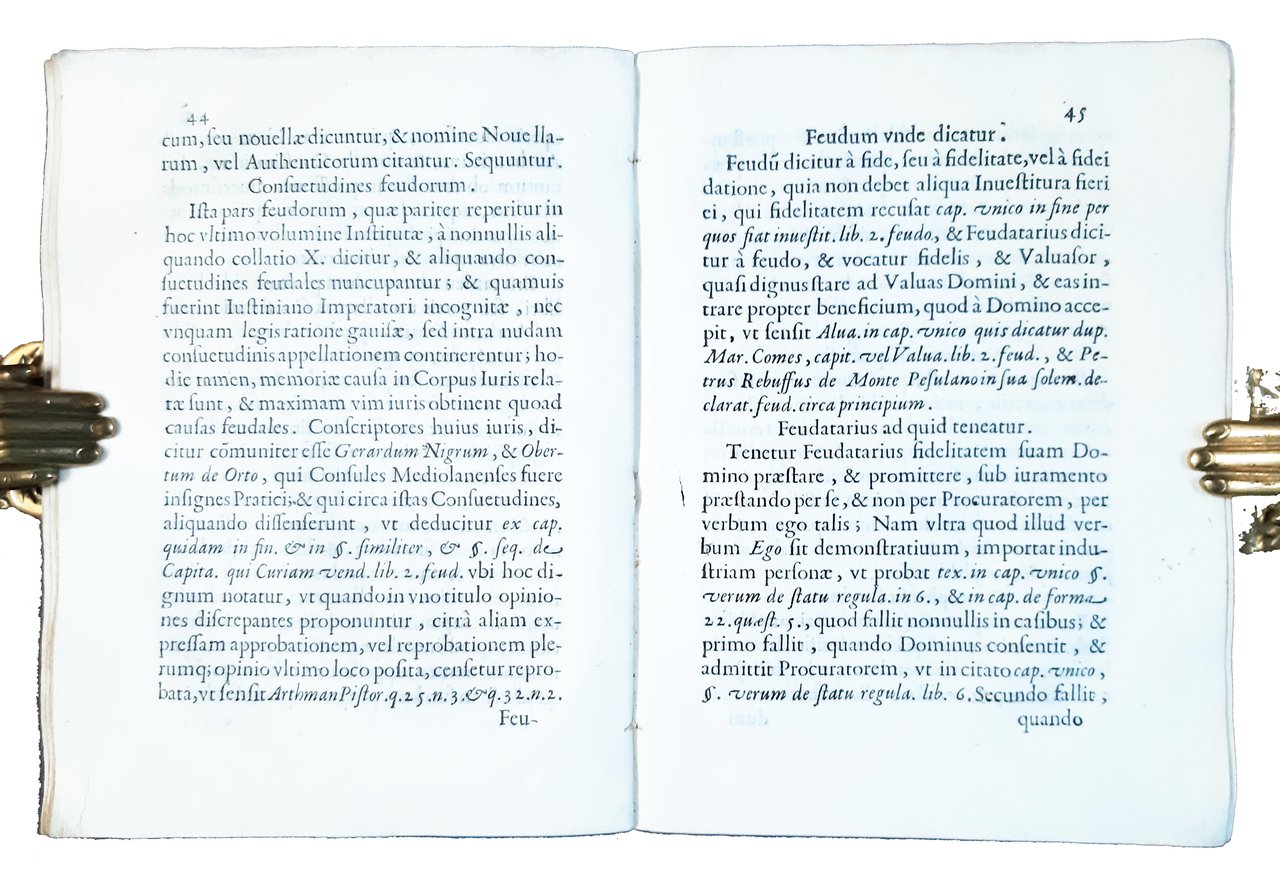 44
cum, ſeu nouellæ dicuntur, & nomine Nouella-
rum, vel Authenticorum citantur. Sequuntur.
Conſuetudines feudorum.
Iſta pars feudorum, quæ pariter reperitur in
hoc vltimo volumine Inſtitutæ, à nonnullis ali-
quando collatio X. dicitur, & aliquando con-
ſuetudines feudales nuncupantur; & quamuis
fuerint Iuſtiniano Imperatori incognitæ, nec
vnquam legis ratione gauiſæ, ſed intra nudam
conſuetudinis appellationem continerentur; ho-
die tamen, memoriæ cauſa in Corpus Iuris rela-
tæ ſunt, & maximam vim iuris obtinent quoad
cauſas feudales. Conſcriptores huius iuris, di-
citur cõmuniter eſſe Gerardum Nigrum, & Ober-
tum de Orto, qui Conſules Mediolanenſes fuere
inſignes Pratici; & qui circa iſtas Conſuetudines,
aliquando diſſenſerunt, vt deducitur ex cap.
quidam in fin. & in §. ſimiliter, & §. ſeq. de
Capita. qui Curiam vend. lib. 2. feud. vbi hoc di-
gnum notatur, vt quando in vno titulo opinio-
nes diſcrepantes proponuntur, citrà aliam ex-
preſſam approbationem, vel reprobationem ple-
rumq; opinio vltimo loco poſita, cenſetur repro-
bata, vt ſenſit Arthman Piſtor. q. 25. n. 3. & q. 32. n. 2.
Feu-
45
Feudum vnde dicatur.
Feudũ dicitur à fide, ſeu à fidelitate, vel à fidei
datione, quia non debet aliqua Inueſtitura fieri
ei, qui fidelitatem recuſat cap. vnico in fine per
quos fiat inueſtit. lib. 2. feudo., & Feudatarius dici-
tur à feudo, & vocatur fidelis, & Valuaſor,
quaſi dignus ſtare ad Valuas Domini, & eas in-
trare propter beneficium, quod à Domino acce-
pit, vt ſenſit Alua. in cap. vnico quis dicatur dup.
Mar. Comes, capit. vel Valua. lib. 2. feud., & Pe-
trus Rebuffus de Monte Peſulano in ſua ſolem. de-
clarat. feud. circa principium.
Feudatarius ad quid teneatur.
Tenetur Feudatarius fidelitatem ſuam Do-
mino præſtare, & promittere, ſub iuramento
præſtando per ſe, & non per Procuratorem, per
verbum ego talis; Nam vltra quod illud ver-
bum Ego ſit demonſtratiuum, importat indu-
ſtriam perſonæ, vt probat tex. in cap. vnico §.
verum de ſtatu regula. in 6., & in cap. de forma
22. quæſt. 5., quod fallit nonnullis in caſibus; &
primo fallit, quando Dominus conſentit, &
admittit Procuratorem, vt in citato cap. vnico,
§. verum de ſtatu regula. lib. 6. Secundo fallit,
quando